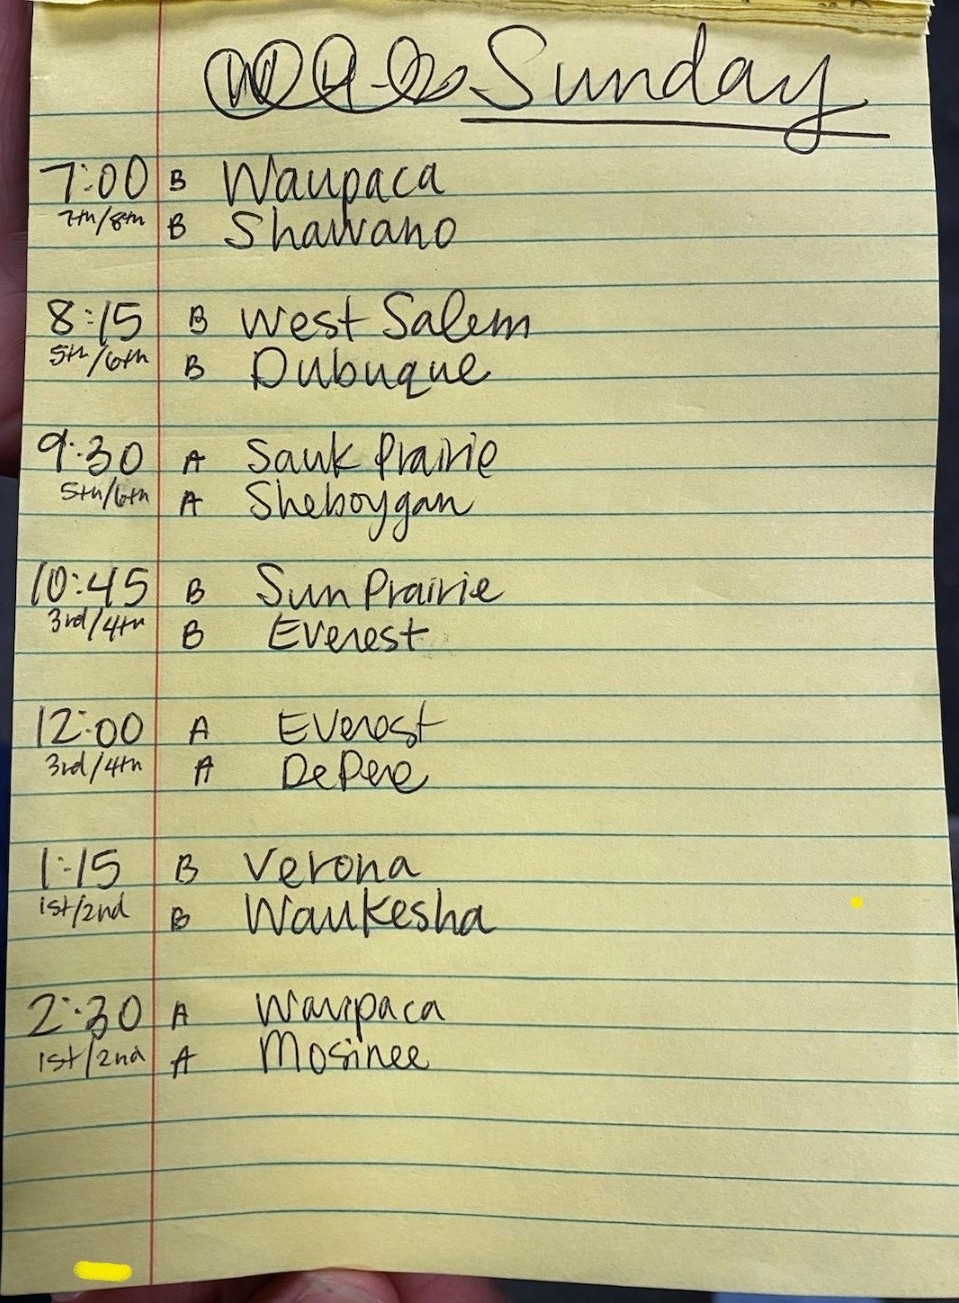 Sunday
7:00 B Waupaca
7th/8th B Shawano
8:15 B West Salem
5th/6th B Dubuque
9:30 A Sauk Prairie
5th/6th A Sheboygan
10:45 B Sun Prairie
3rd/4th B Everest
12:00 A Everest
3rd/4th A DePere
1:15 B Verona
1st/2nd B Waukesha
2:30 A Waupaca
1st/2nd A Mosinee